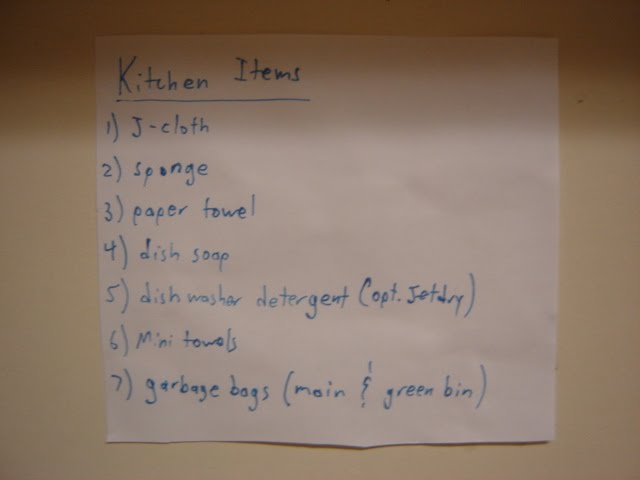 Kitchen Items
1) J-cloth
2) sponge
3) paper towel
4) dish soap
5) dishwasher detergent (opt. Jetdry)
6) Mini towels
7) garbage bags (main & green bin)